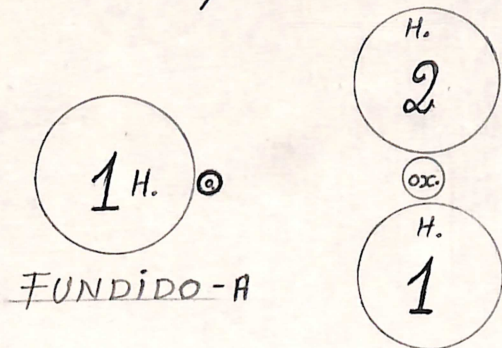 1 H. a
FUNDIDO-A
H.
2
ox.
H.
1